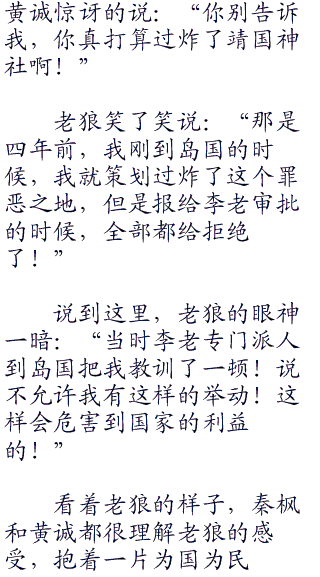 黄诚惊讶的说：“你别告诉
我，你真打算过炸了靖国神
社啊！”
老狼笑了笑说：“那是
四年前，我刚到岛国的时
候，我就策划过炸了这个罪
恶之地，但是报给李老审批
的时候，全部都给拒绝
了！”
说到这里，老狼的眼神
一暗：“当时李老专门派人
到岛国把我教训了一顿！说
不允许我有这样的举动！这
样会危害到国家的利益
的！”
看着老狼的样子，秦枫
和黄诚都很理解老狼的感
受，抱着一片为国为民